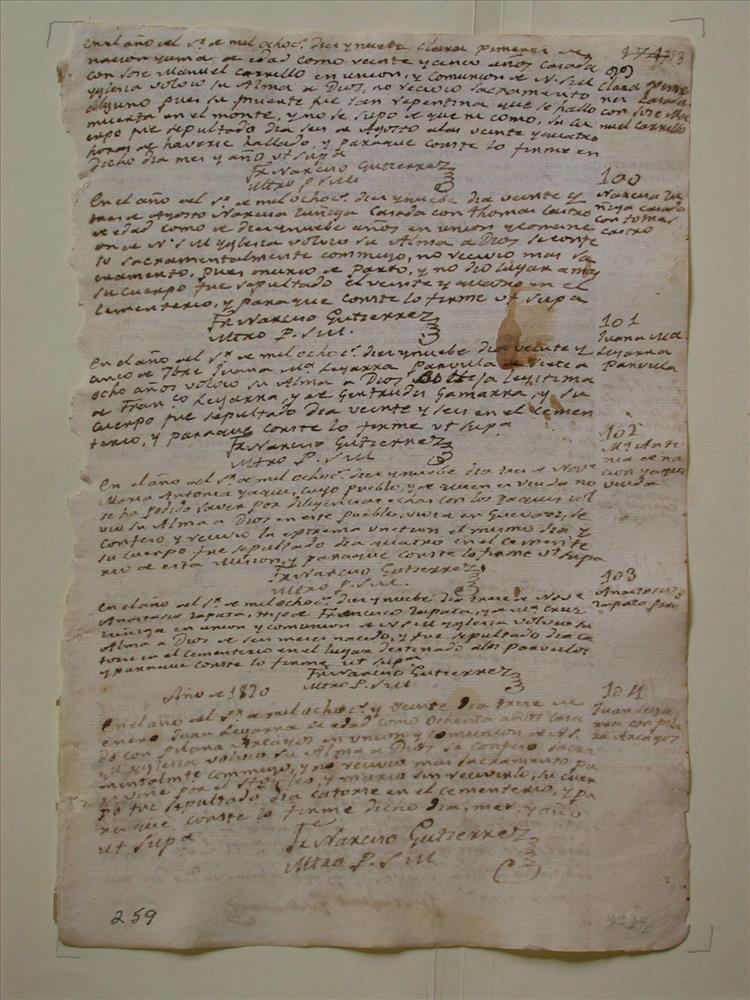 En el año del Sr. de mil ochoc.s diez y nuebe Clara Pimenes de
nacion yuma de edad como veinte y cinco años Casada
con Jose Manuel Carrillo en union, y Comunion de N. S. M
Yglesia volvio su Alma a Dios, no recivio Sacramento
alguno pues su muerte fue tan repentina que se hallo
muerta en el monte, y no se supo de que ni como, su Cu
erpo fue sepultado dia seis de Agosto a las veinte y quatro
horas de haverse hallado, y paraque conste lo firme en
dicho dia mes y año ut supª
Fr Narciso Gutierrez
Mtro P. S. M.
99
Clara Pime
nes Casada
con Jose Ma
nuel Carrillo
En el año del Sr. de mil ochoc.s diez y nuebe dia veinte y
tres de Agosto Narcisa Zuñiga Casada con Thomas Castro
de edad como de diez y nuebe años en union y comuni
on de N. S. M Yglesia volvio su Alma a Dios se confe
so sacramentalmente commigo, no recivio mas sa
cramento, pues murio de parto, y no dio lugar a mas
su cuerpo fue sepultado el veinte y quatro en el
Cementerio, y paraque conste lo firme ut supª
Fr Narciso Gutierrez
Mtro P. S. M.
100
Narcisa Zu
ñiga casada
con tomas
castro
En el año del Sr. de mil ochoc.s diez y nuebe dia veinte y
cinco de 7bre Juana Mª Leyarra Parvula de siete a
ocho años volvio su Alma a Dios hija Legitima
de Fran.co Leyarra, y de Gertrudis Gamarra, y su
cuerpo fue sepultado dia veinte y seis en el Cemen
terio, y paraque conste lo firme ut supª
Fr Narciso Gutierrez
Mtro P. S. M
101
Juana Mª
Leyarra
Parvula
En el año del Sr. de mil ochoc.s diez y nuebe dia tres de Nove
Maria Antonia yaqui, cuyo Pueblo, y de quien es viuda no
se ha podido saver por diligencias echas con los yaquis vol
vio su Alma a Dios en este Pueblo, vivia en Guevavi, se
confeso y recivio la extrema uncion el mismo dia y
su cuerpo fue sepultado dia quatro en el Cemente
rio de esta Mission, y paraque conste lo firme ut supª
Fr Narciso Gutierrez
Mtro P. S. M.
102
Mª Anto
nia de na
cion yaqui
viuda
En el año del Sr. de mil ochoc.s diez y nuebe dia trece de Nove
Anastasio Zapata, Hijo de Francisco Zapata, y de Mª Cruz
Zuñiga en union y comunion de N S M Yglesia volvio su
Alma a Dios de seis meses nacido, y fue sepultado dia ca
torce en el Cementerio en el lugar destinado a los parvulos
y paraque conste lo firme ut supª
Fr Narciso Gutierrez
Mtro P. S. M
103
Anastasio
Zapata Par
Año de 1820
En el año del Sr. de mil ochoc.s y veinte dia trece de
enero Juan Leyarra de edad como ochenta años Casa
do con Pilara Arcayos en union y comunion de N. S.
M. Yglesia volvio su Alma a Dios se confeso Sacra
mentalmte commigo, y no recivio mas sacramento pu
es vine por el Sto oleo, y murio sin recivirlo, su cuer
po fue sepultado dia catorse en el cementerio, y pa
ra que conste lo firme dicho dia, mes, y año
ut supª
Fr Narciso Gutierrez
Mtro P. S M
104
Juan Leya
rra con Pila
ra Arcayos
259